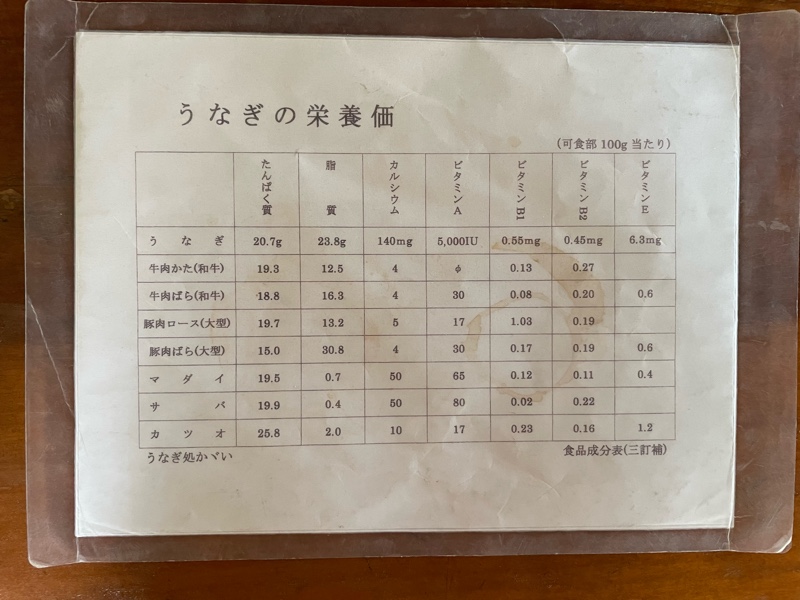 うなぎの栄養価
(可食部100g当たり)
たんぱく質 脂質 カルシウム ビタミンA ビタミンB1 ビタミンB2 ビタミンE
うなぎ 20.7g 23.8g 140mg 5,000IU 0.55mg 0.45mg 6.3mg
牛肉かた(和牛) 19.3 12.5 4 φ 0.13 0.27
牛肉ばら(和牛) 18.8 16.3 4 30 0.08 0.20 0.6
豚肉ロース(大型) 19.7 13.2 5 17 1.03 0.19
豚肉ばら(大型) 15.0 30.8 4 30 0.17 0.19 0.6
マダイ 19.5 0.7 50 65 0.12 0.11 0.4
サバ 19.9 0.4 50 80 0.02 0.22
カツオ 25.8 2.0 10 17 0.23 0.16 1.2
うなぎ処かゞい 食品成分表(三訂補)